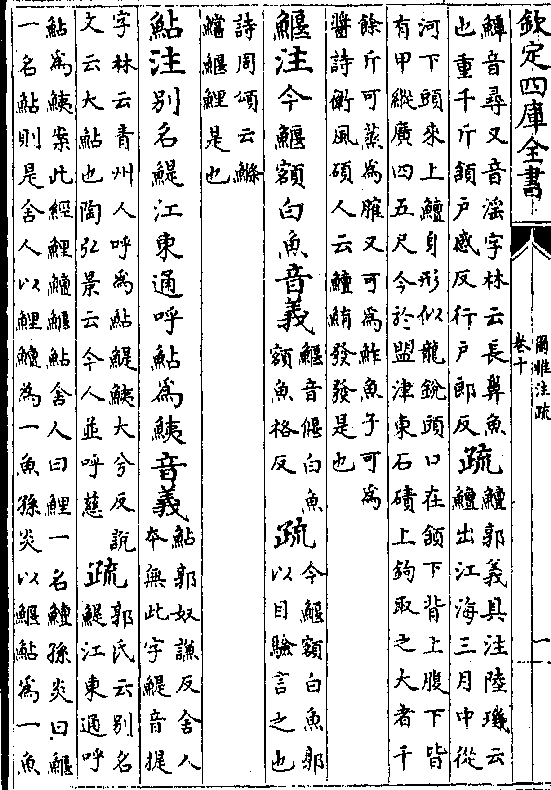 欽定四庫全書
爾雅注疏
卷十
一
鱏音尋又音淫字林云長鼻魚
也重千斤頷戸感反行戸郎反
疏
鱣郭義具注陸璣云
鱣出江海三月中從
河下頭來上鱣身形似龍銳頭口在頷下背上腹下皆
有甲縱廣四五尺今於盟津東石磧上鉤取之大者千
餘斤可蒸為臛又可為鮓魚子可為
醬詩衛風碩人云鱣鮪發發是也
鰋注今鰋額白魚音義
鰋音偃白魚
額魚格反
疏
今鰋額白魚郭
以目驗言之也
詩周頌云鰷
鱨鰋鯉是也
鮎注别名鯷江東通呼鮎為鮧音義
鮎郭奴謙反舍人
本無此字鯷音提
字林云青州人呼為鮎鯷鮧大兮反說
文云大鮎也陶弘景云今人並呼慈
疏
郭氏云别名
鯷江東通呼
鮎為鮧案此經鯉鱣鰋鮎舍人曰鯉一名鱣孫炎曰鰋
一名鮎則是舍人以鯉鱣為一魚孫炎以鰋鮎為一魚